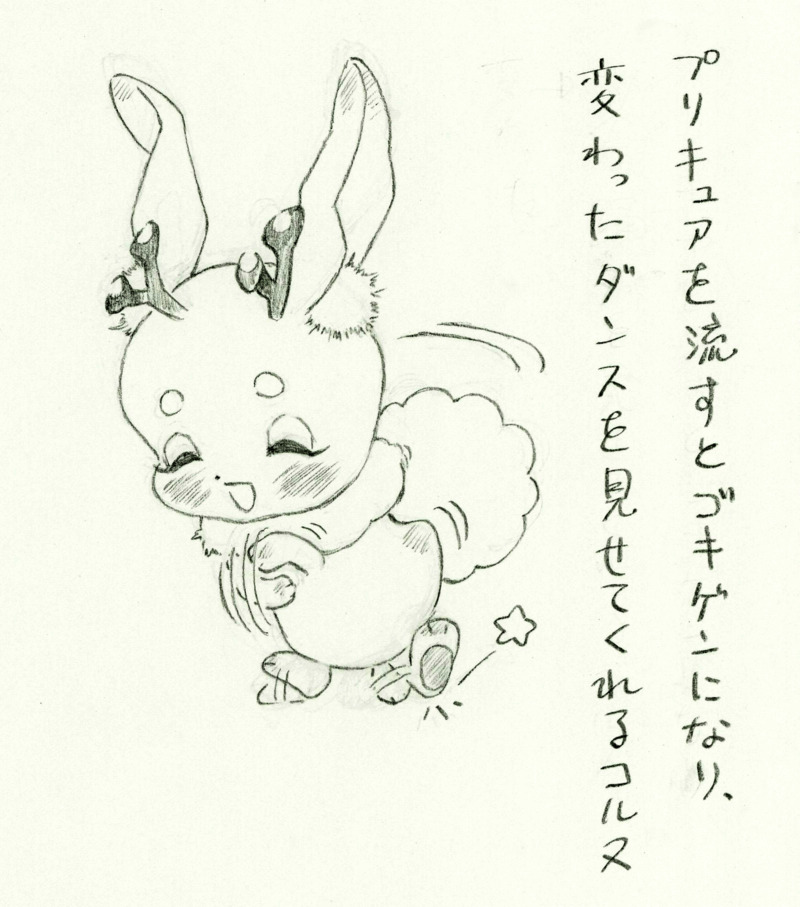 プリキュアを流すとゴキゲンになり、
変わったダンスを見せてくれるコルヌ